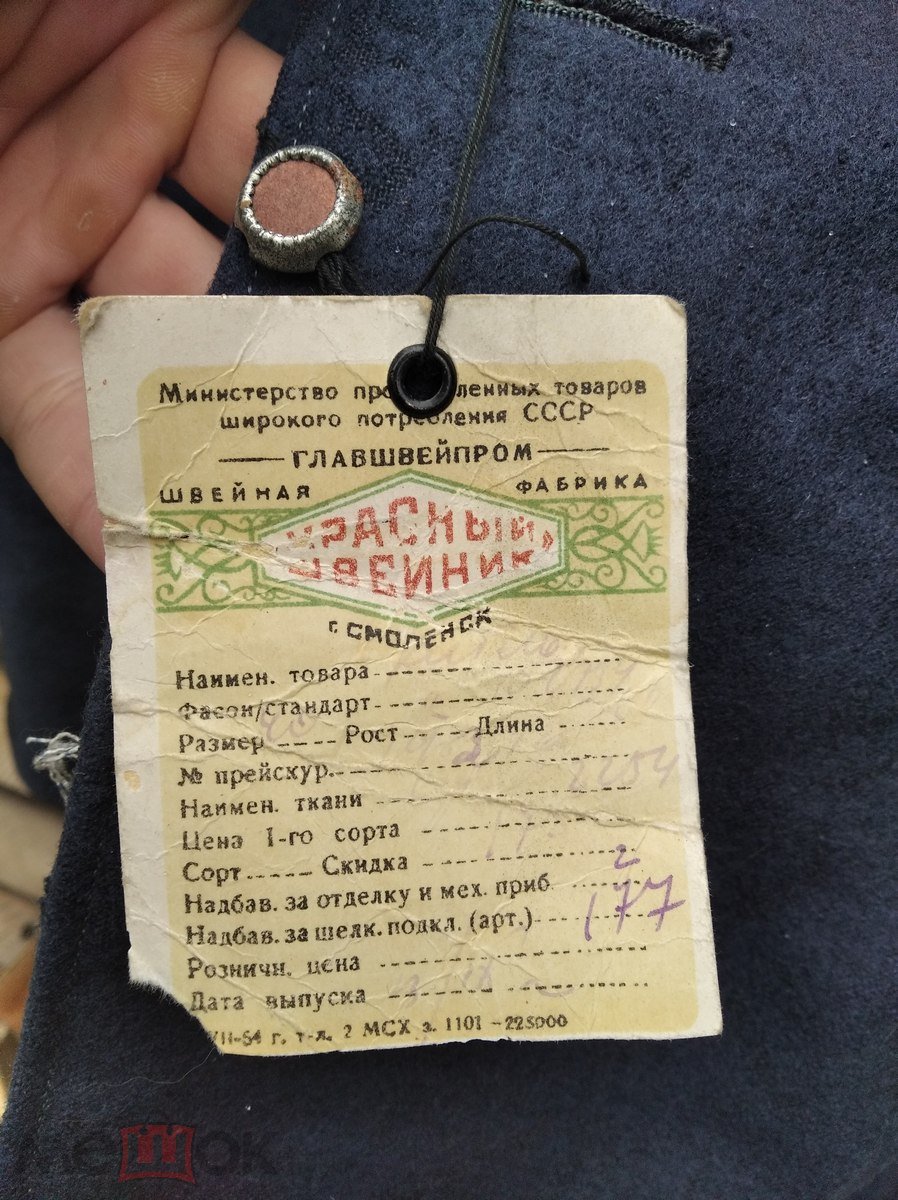 Министерство про ленных товаров
широкого потребления СССР
ГЛАВШВЕЙПРОМ
ШВЕЙНАЯ ФАБРИКА
«КРАСНЫЙ
ШВЕЙНИК»
г. СМОЛЕНСК
Наимен. товара
Фасон/стандарт
Размер Рост Длина
№ прейскур.
Наимен. ткани
Цена I-го сорта
Сорт Скидка
Надбав. за отделку и мех. приб
Надбав. за шелк. подкл. (арт.) 177
Розничн. цена
Дата выпуска
VII-54 г. т-л. 2 МСХ з. 1101-225000
мешок